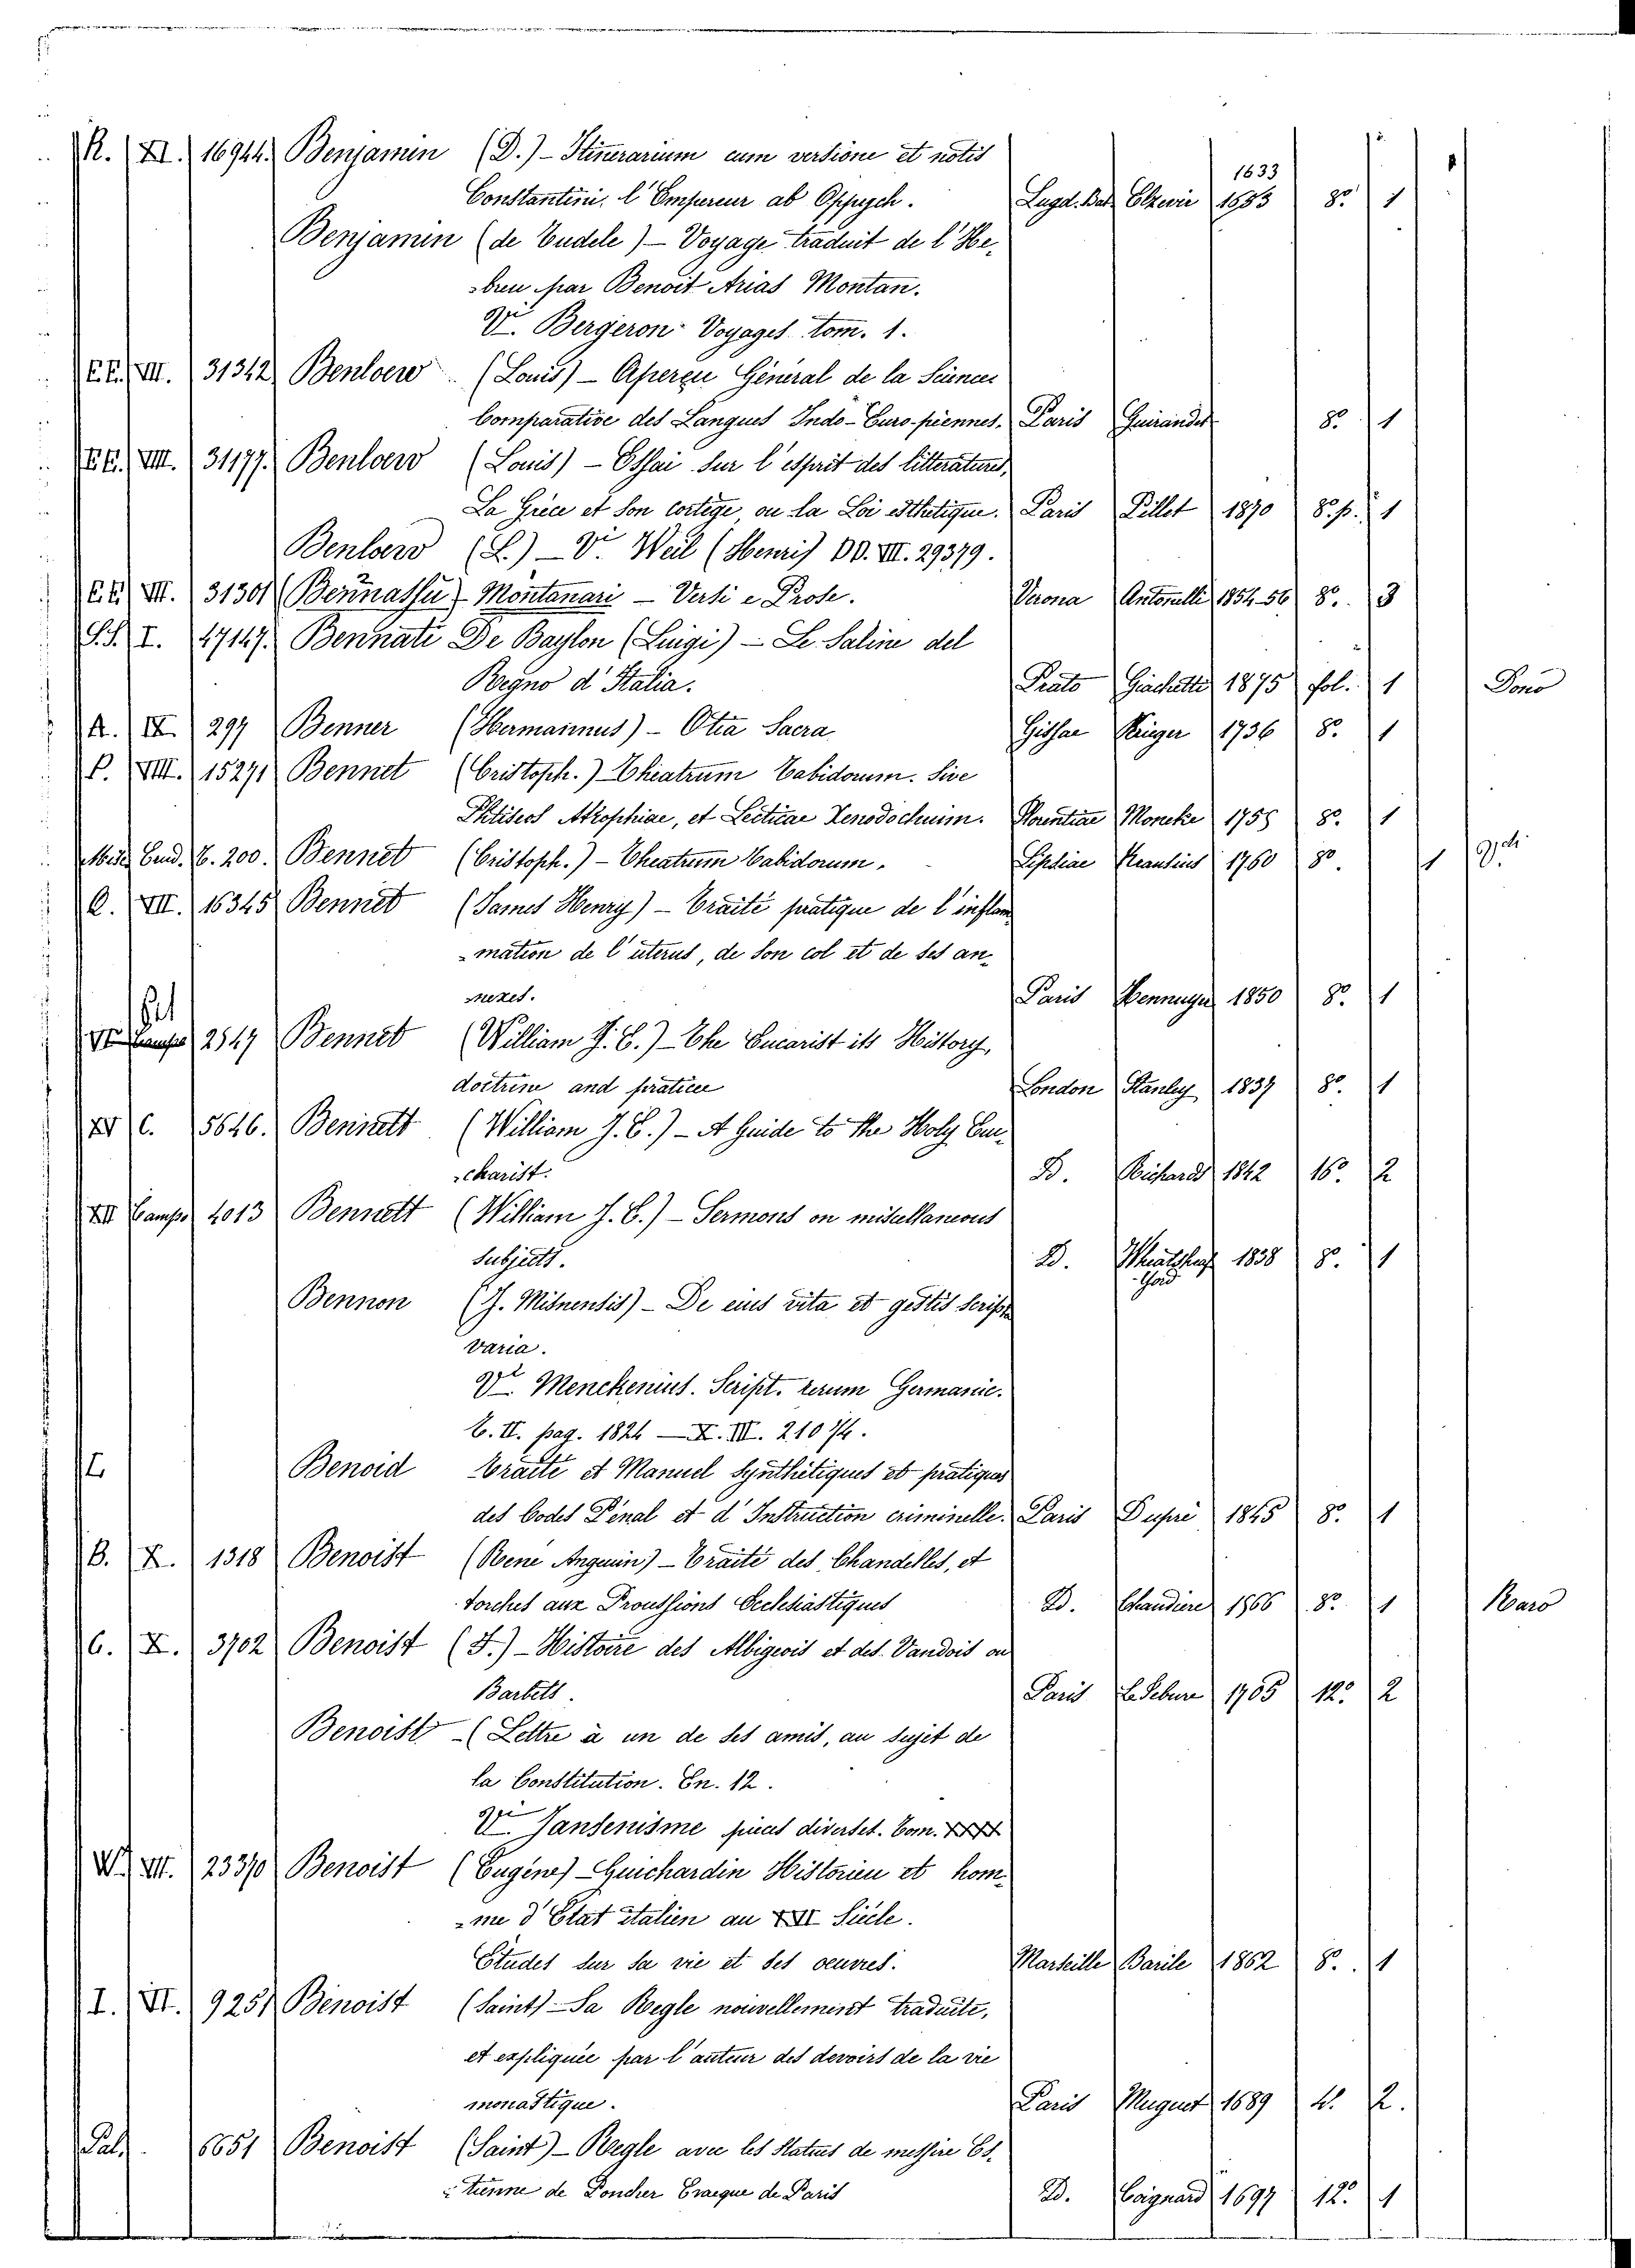 R. XI. 16944. Benjamin (D.) - Itinerarium cum versione et notis
Constantini, l'Empereur ab Oppych. Lugd. Bat. Elzevir 1633 1633 8º 1
Benjamin (de Tudele) - Voyage traduit de l'He-
-breu par Benoit Arias Montan.
Vi. Bergeron - Voyages tom. 1.
EE. VIII. 31342 Benloew (Louis) - Aperçu Général de la Science
Comparative des Langues Indo-Européennes. Paris 8º 1
EE. VIII. 31177. Benloew (Louis) - Essai sur l'esprit des litteratures,
La Grèce et son cortège, ou la Loi esthetique. Paris Pillet 1870 8º p. 1
Benloew (L.) - Vi. Weil (Henri) DD. VII. 29379.
EE. VII. 31301 (Bennassu) - Montanari - Versi e Prose. Verona Antonelli 1854-56 8º. 3
S.S. I. 47147. Bennati De Baylon (Luigi) - Le Saline del
Regno d'Italia. Prato Giachetti 1875 fol. 1 Dono
A. IX. 297 Benner (Hermannus) - Otia Sacra Gissae Krüger 1736 8º 1
P. VIII. 15271 Bennet (Cristoph.) Theatrum Tabidorum. Sive
Phtiseos Atrophiae, et Lecticae Xenodochium. Florentiae Moncke 1755 8º. 1
Misc. Cend. C. 200. Bennet (Cristoph.) - Theatrum Tabidorum. Lipsiae Krausius 1760 8º. 1
Q. VII. 16345 Bennet (James Henry) - Traité pratique de l'inflam
-mation de l'uterus, de son col et de ses an-
-nexes. Paris Hennuyer 1850 8º. 1
VI Campo 2547 Bennet (William J. E.) - The Eucarist its History,
doctrine and pratice London Stanley 1837 8º. 1
XV C. 5646. Bennett (William J. E.) - A Guide to the Holy Eu-
-charist. D. Richards 1842 16º 2
XII Campo 4013 Bennett (William J. E.) - Sermons on miscellaneous
Subjects. D. 1838 8º. 1
Bennon (J. Misnensis) - De eius vita et gestis Scripta
varia.
Vi. Menckenius. Script. rerum Germanic.
T. II. pag. 1824 — X. III. 21074.
Benoid Traité et Manuel Synthétiques et pratiques
des Codes Pénal et d'Instruction criminelle. Paris Dupré 1845 8º. 1
B. X. 1318 Benoist (Rene Anguin) - Traité des Chandelles, et
torches aux Proussions Ecclesiastiques D. Chaudiere 1566 8º. 1 Raro
C. X. 3702 Benoist (J.) - Histoire des Albigeois et des Vaudois ou
Barbets. Paris Le Febure 1705 12º. 2
Benoist - (Lettre à un de ses amis, au sujet de
la Constitution. En. 12.
Vi. Jansenisme pieces diverses. Tom.
W. VII. 23370 Benoist (Eugène) - Guichardin Historien et hom-
-me d'Etat italien au XVI Siècle.
Études sur sa vie et ses oeuvres. Marseille Barile 1862 8º. 1
I. VI. 9251 Benoist (Saint) - Sa Regle nouvellement traduite,
et expliquée par l'auteur des devoirs de la vie
monastique. Paris Muguet 1689 4º. 2.
Pal. 6651 Benoist (Saint) - Regle avec les Statuts de messire Es-
-tienne de Poncher Evaeque de Paris D. Coignard 1697 12º. 1